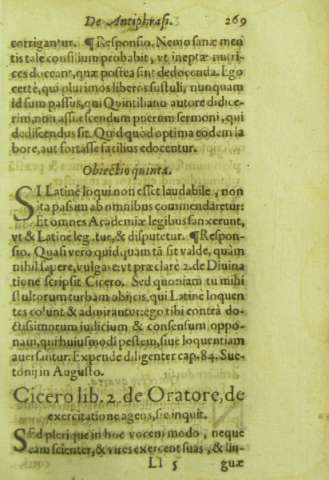 De Antiphrasi. 269
corrigantur. ¶Responsio. Nemo sanæ men
tis tale consilium probabit, vt ineptæ nutri-
ces doceant, quæ postea sint dedocenda. Ego
certè, qui plurimos liberos sustuli, nunquam
id sum passus, qui Quintiliano autore didice-
rim, non assuescendum puerum sermoni, qui
dediscendus sit. Quid quòd optima eodem la
bore, aut fortasse facilius edocentur.
Obiectio quinta.
SI Latinè loqui non esset laudabile, non
ita passim ab omnibus commendaretur:
Et omnes Academiæ legibus sanxerunt,
vt & Latine legatur, & disputetur. ¶Respon-
sio. Quasi vero quidquam tã sit valde, quàm
nihil sapere, vulgare: vt præclarè 2. de Diuina
tione scripsit Cicero. Sed quoniam tu mihi
stultorum turbam obijcis, qui Latine loquen
tes colunt & admirantur: ego tibi contrà do-
ctissimorum iudicium & consensum oppo-
nam, qui huiusmodi pestem, siue loquentiam
auersantur. Expende diligenter cap. 84. Sue-
tonij in Augusto.
Cicero lib. 2. de Oratore, de
exercitatione agens, sic inquit.
SEd plerique in hoc vocem modo, neque
eam scienter, & vires exercent suas, & lin-
Ll 5 guæ